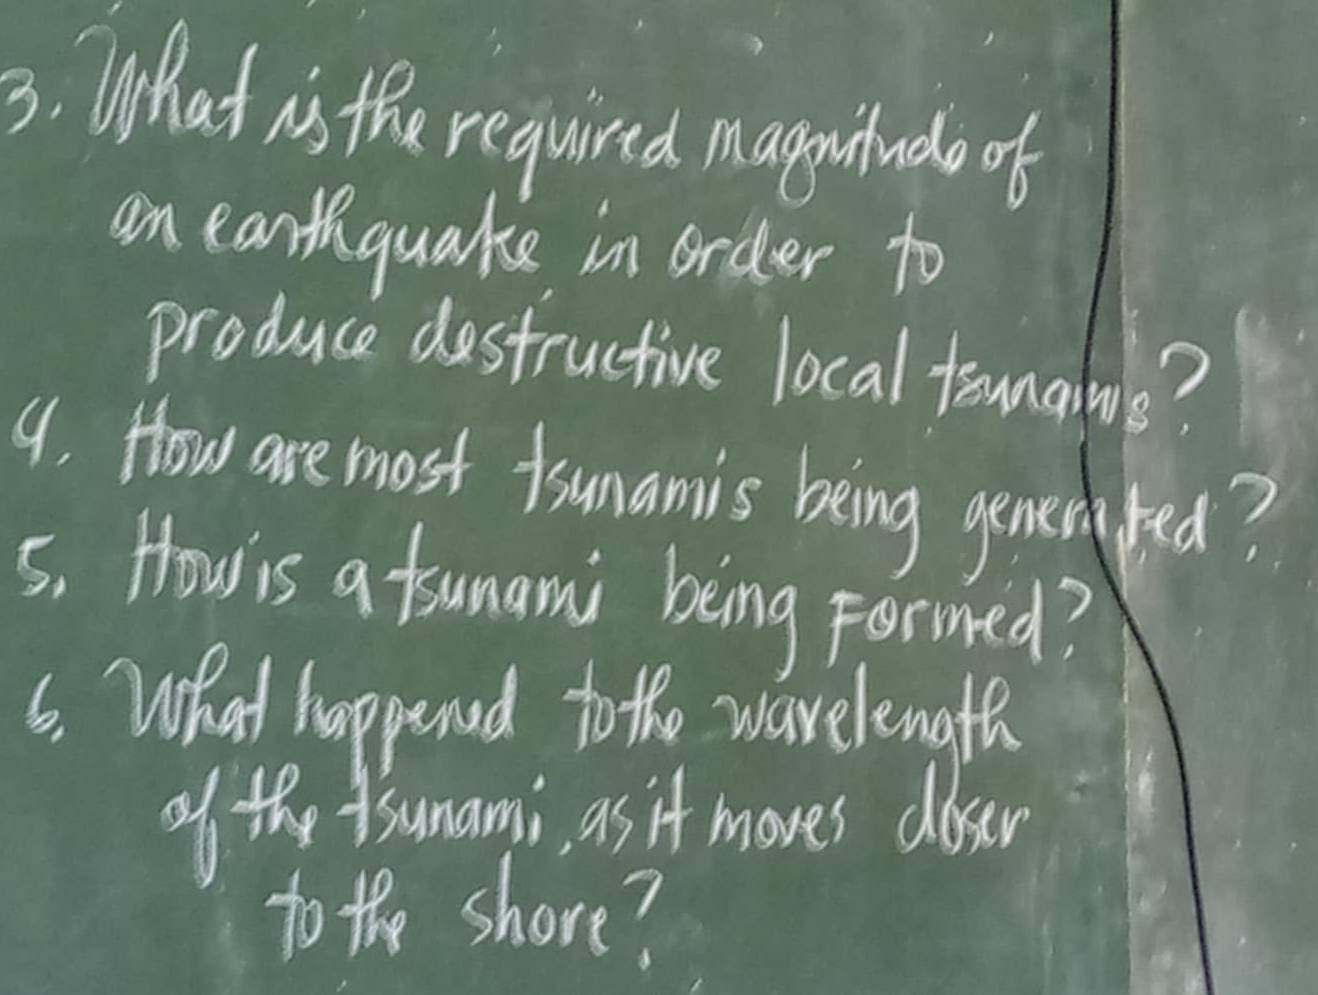 3. What is the required magnitude of
an earthquake in order to
produce destructive local tsunamis?
4. How are most tsunamis being generated?
5. How is a tsunami being Formed?
6. What happened to the wavelength
of the tsunami, as it moves closer
to the shore?